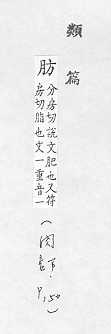 類篇
肪
分房切說文肥也又符
房切脂也文一重音一
(肉 下. P.150)